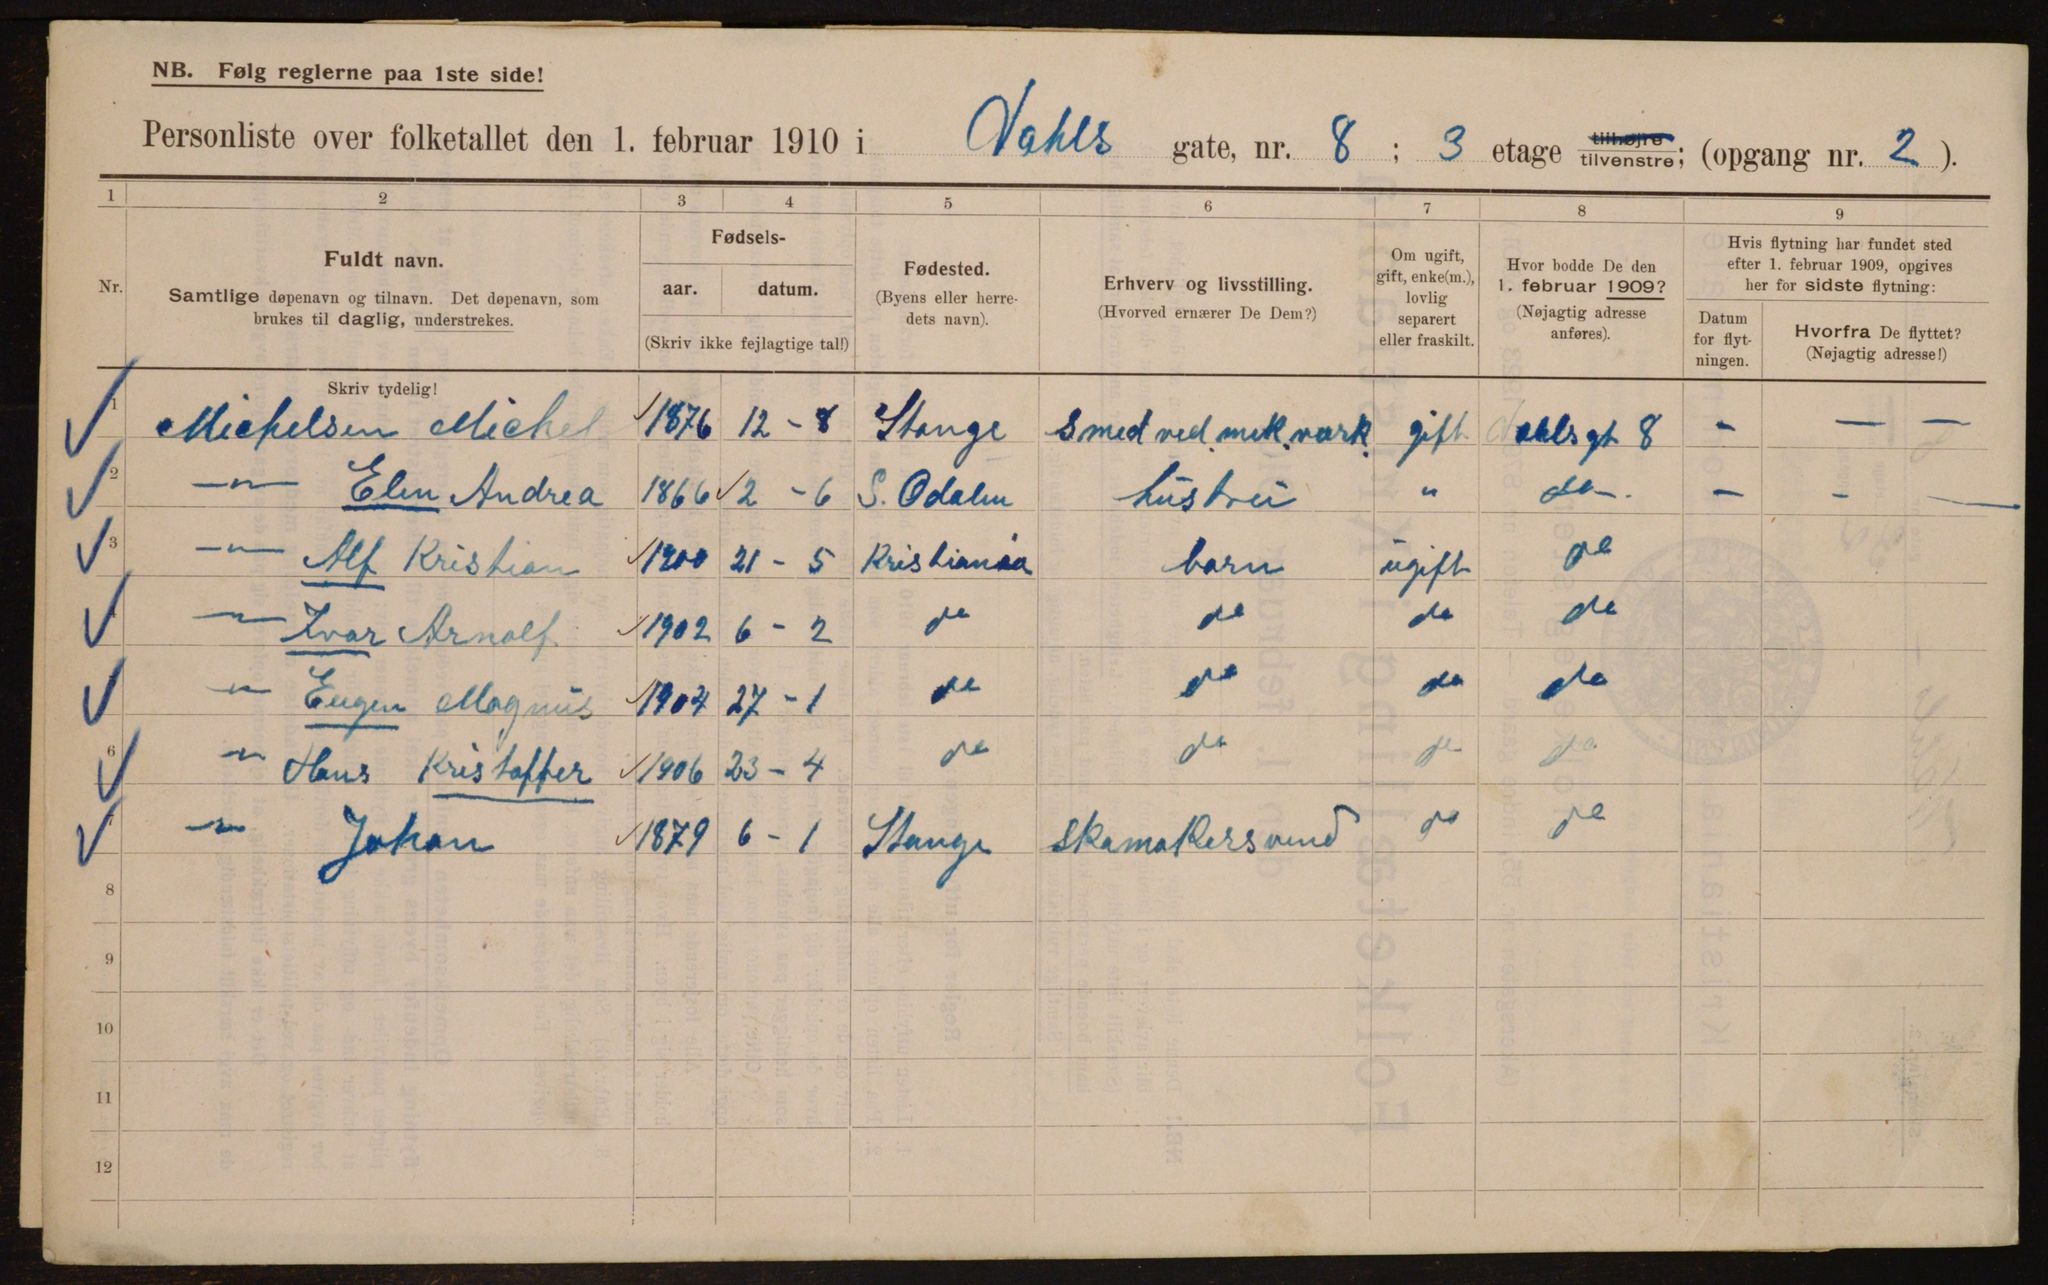 NB. Følg reglerne paa 1ste side!
Personliste over folketallet den 1. februar 1910 i Dahls gate, nr. 8 ; 3 etage tilhøjre tilvenstre; (opgang nr. 2 ).
1 2 3 4 5 6 7 8 9
Nr.
Fuldt navn.
Samtlige døpenavn og tilnavn. Det døpenavn, som
brukes til daglig, understrekes.
Skriv tydelig!
Fødsels-
aar. datum.
(Skriv ikke fejlagtige tal!)
Fødested.
(Byens eller herre-
dets navn).
Erhverv og livsstilling.
(Hvorved ernærer De Dem?)
Om ugift,
gift, enke(m.),
lovlig
separert
eller fraskilt.
Hvor bodde De den
1. februar 1909?
(Nøjagtig adresse
anføres).
Hvis flytning har fundet sted
efter 1. februar 1909, opgives
her for sidste flytning:
Datum
for flyt-
ningen.
Hvorfra De flyttet?
(Nøjagtig adresse!)
1 Michelsen Michel 1876 12 - 8 Stange Smed ved. mek. værk. gift Dahlsgt 8 - — —
2 -"- Elen Andrea 1866 2 - 6 S. Odalen hustru " do - - —
3 -"- Alf Kristian 1900 21 - 5 Kristiania barn ugift do
-"- Ivar Arnolf 1902 6 - 2 do do do do
-"- Eugen Magnus 1904 27 - 1 do do do do
6 -"- Hans Kristoffer 1906 23 - 4 do do do do
-"- Johan 1879 6 - 1 Stange Skomakersvend do do
8
9
10
11
12